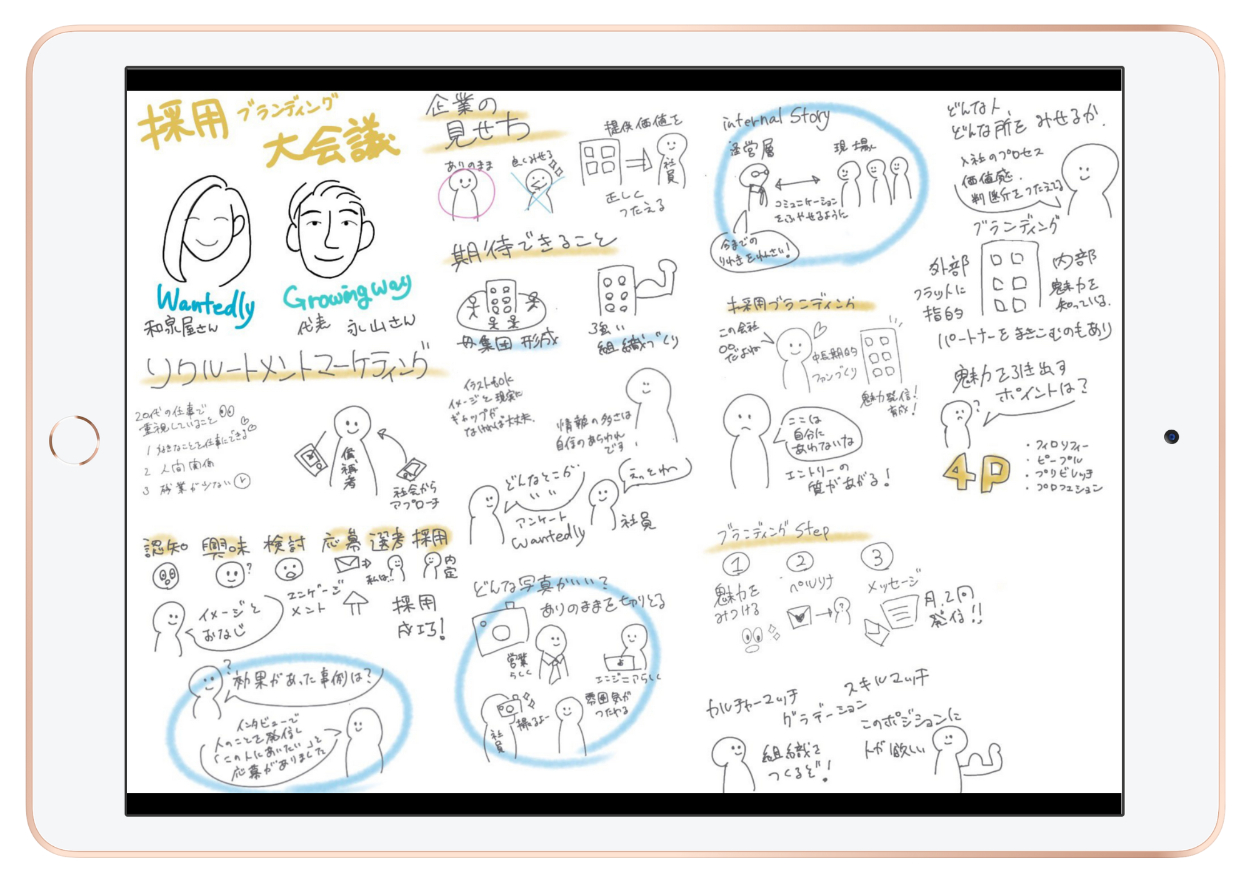 採用
ブランディング
大会議
Wantedly
和泉屋さん
Growingway
代表 永山さん
リクルートメントマーケティング
20代の仕事で
重視していること
1 好きなことを仕事にできる
2 人間関係
3 残業が少ない
候補者
社会から
アプローチ
認知 興味 検討 応募 選考 採用
私は…
内定
イメージと
おなじ
エンゲージ
メント
採用
成功!
効果があった事例は?
インタビューで
人のことを発信し
「この人にあいたい」と
応募がありました
企業の
見せ方
ありのまま
良くみせる
提供価値を
社員
正しく
つたえる
期待できること
母集団形成
強い
組織づくり
イラストもok
イメージと現実に
ギャップが
なければ大丈夫
情報の多さは
自信のあらわれ
です
どんなとこが
いい
アンケート
Wantedly
えっとね
社員
どんな写真がいい?
ありのままを切りとる
営業
らしく
エンジニアらしく
社員
撮るよー
雰囲気が
つたわる
internal Story
経営層
現場
コミュニケーション
をふやせるように
今までの
ブランディング
どんな人
どんな所をみせるか.
入社のプロセス
価値感.
判断をつたえてる
外部
フラットに
指摘
内部
魅力を
知っている.
パートナーをまきこむのもあり
採用ブランディング
この会社
〇〇
だよね
中長期的
ファンづくり
魅力発信!
育成!
ここは
自分に
あわないな
エントリーの
質があがる!
魅力を引き出す
ポイントは?
4P
・フィロソフィー
・ピープル
・プリビレッジ
・プロフェション
ブランディング Step
1
2
3
魅力を
みつける
ペルソナ
メッセージ
月.2回
発信!!
カルチャーマッチ
グラデーション
スキルマッチ
組織を
つくるぞ!
このポジションに
人が欲しい